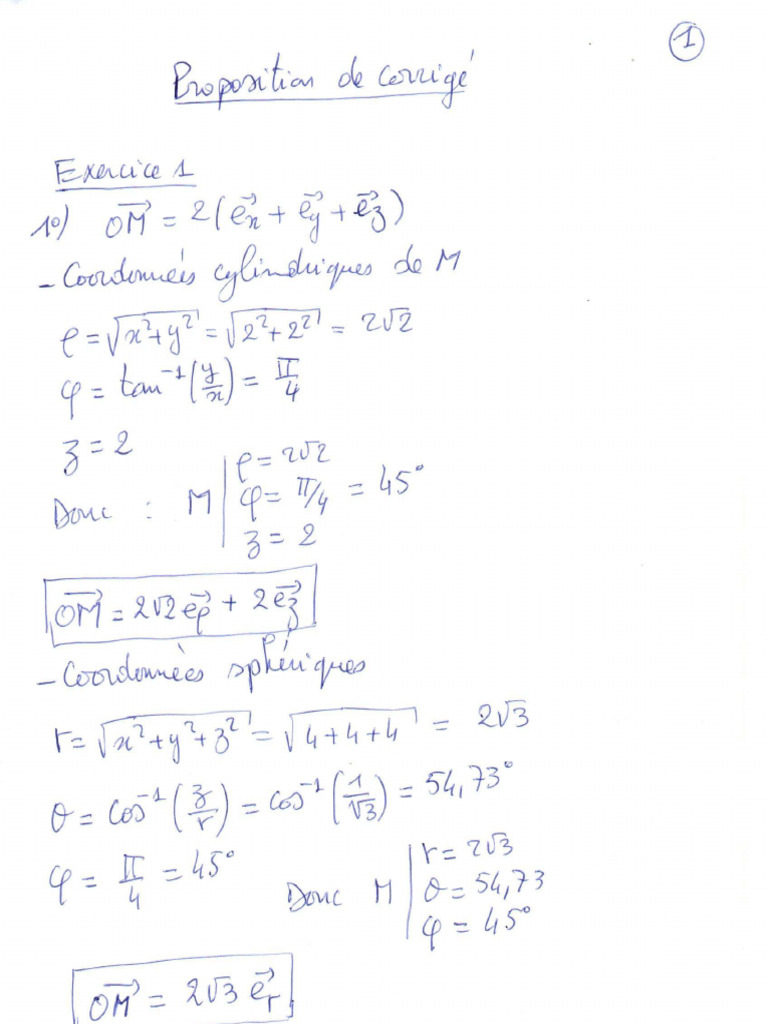 1
Proposition de corrigé
Exercice 1
1°) OM⃗ = 2(e⃗x + e⃗y + e⃗z)
- Coordonnées cylindriques de M
ρ = √(x² + y²) = √(2² + 2²) = 2√2
φ = tan⁻¹(y/x) = π/4
z = 2
Donc : M | ρ = 2√2
φ = π/4 = 45°
z = 2
OM⃗ = 2√2 e⃗ρ + 2 e⃗z
- Coordonnées sphériques
r = √(x² + y² + z²) = √(4 + 4 + 4) = 2√3
θ = cos⁻¹(z/r) = cos⁻¹(1/√3) = 54,73°
φ = π/4 = 45°
Donc M | r = 2√3
θ = 54,73
φ = 45°
OM⃗ = 2√3 e⃗r